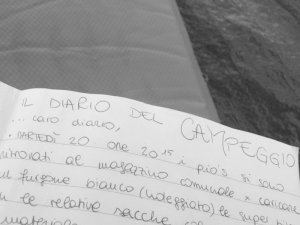 IL DIARIO DEL CAMPEGGIO
... caro diario,
. MARTEDÌ 20 ore 20¹⁵ i pio's si sono
ritrovati al magazzino comunale x caricare
sul furgone bianco (noleggiato) le super
con le relative sacche
materiale